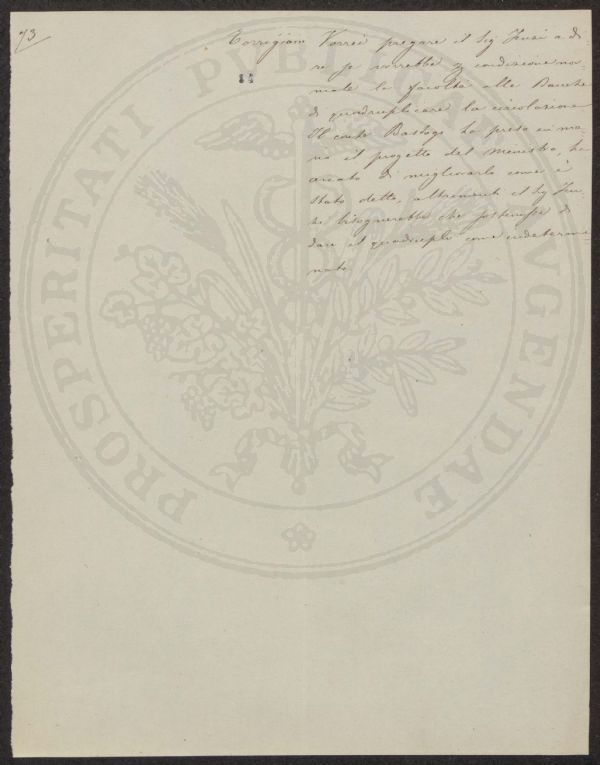 73
Torrigiani Vorrei pregare il Sig Fenzi a di=
re se vorrebbe p condizione nor=
male la facoltà alle Banche
di quadruplicare la circolazione
Il conte Bastogi ha preso in ma=
no il progetto del Ministro, ha
cercato di migliorarlo come è
stato detto, altrimenti il Sig Fen=
zi bisognerebbe che sostenesse di
dare il quadruplo come indetermi=
nato
PROSPERITATI PUBLICAE AUGENDAE